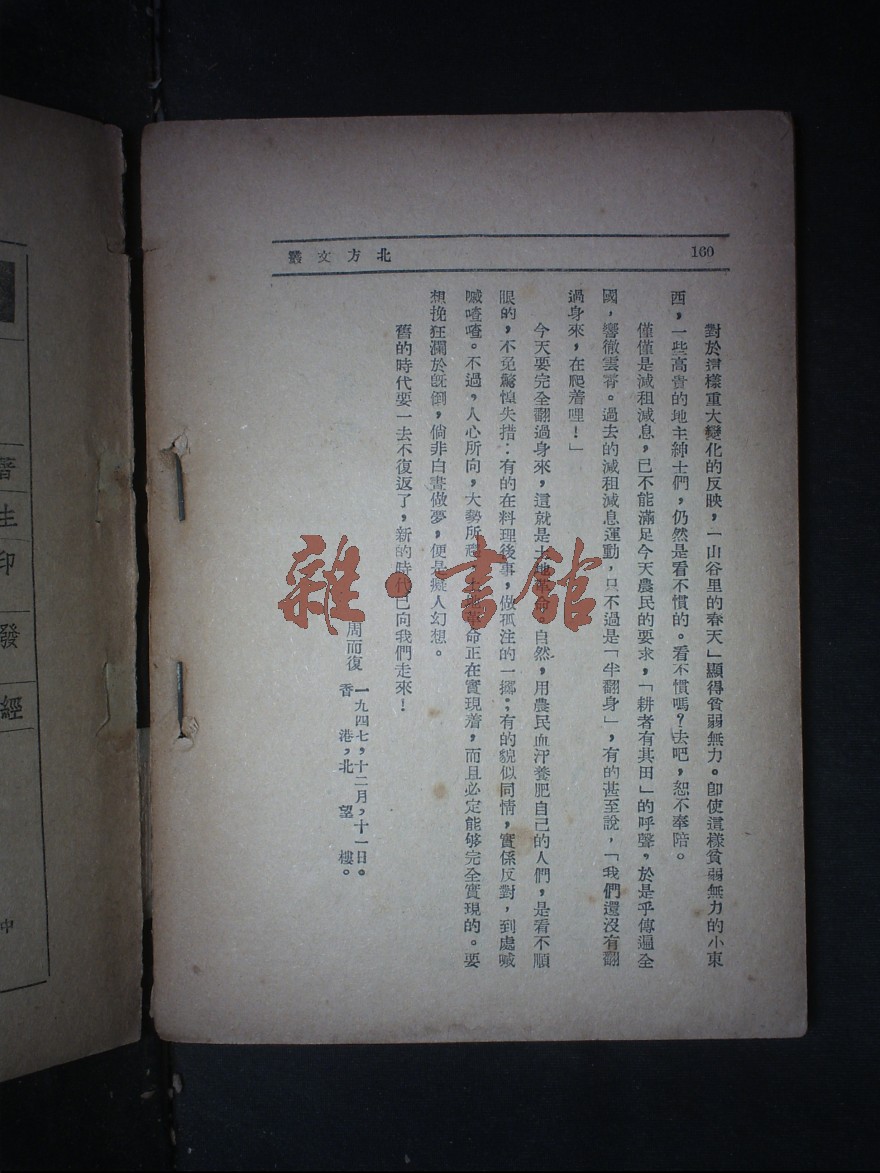 160
北方文叢
對於這樣重大變化的反映，「山谷里的春天」顯得貧弱無力。卽使這樣貧弱無力的小東
西，一些高貴的地主紳士們，仍然是看不慣的。看不慣嗎？去吧，恕不奉陪。
僅僅是減租減息，已不能滿足今天農民的要求，「耕者有其田」的呼聲，於是乎傳遍全
國，響徹雲霄。過去的減租減息運動，只不過是「半翻身」，有的甚至說，「我們還沒有翻
過身來，在爬着哩！」
今天要完全翻過身來，這就是土地革命。自然，用農民血汗養肥自己的人們，是看不順
眼的，不免驚惶失措：有的在料理後事，做孤注的一擲；有的貌似同情，實係反對，到處喊
喊喳喳。不過，人心所向，大勢所趨，土地革命正在實現着，而且必定能够完全實現的。要
想挽狂瀾於旣倒，倘非白晝做夢，便是癡人幻想。
舊的時代要一去不復返了，新的時代已向我們走來！
周而復 一九四七，十二月，十一日。
香港，北望樓。
著
生
印
發
經
中
雜·書館